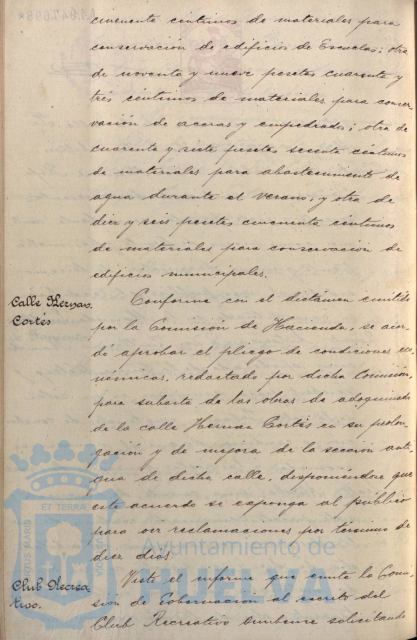 cincuenta céntimos de materiales para
conservación de edificios de Escuelas; otra
de noventa y nueve pesetas cuarenta y
tres céntimos de materiales para conser-
vación de aceras y empedrados; otra de
cuarenta y siete pesetas sesenta céntimos
de materiales para abastecimiento de
agua durante el verano, y otra de
diez y seis pesetas cincuenta céntimos
de materiales para conservación de
edificios municipales.
Calle Hernan
Cortés
Conforme con el dictámen emitido
por la Comisión de Hacienda, se acor-
dó aprobar el pliego de condiciones eco-
nómicas, redactado por dicha Comisión,
para subasta de las obras de adoquinado
de la calle Hernan Cortés en su prolon-
gación y de mejora de la sección anti-
gua de dicha calle, disponiéndose que
este acuerdo se exponga al público
para oir reclamaciones por término de
diez dias.
Club Recrea-
tivo.
Visto el informe que emite la Comi-
sión de Gobernación al escrito del
Club Recreativo Onubense solicitando
ET TERRA
Ayuntamiento de
HUELVA